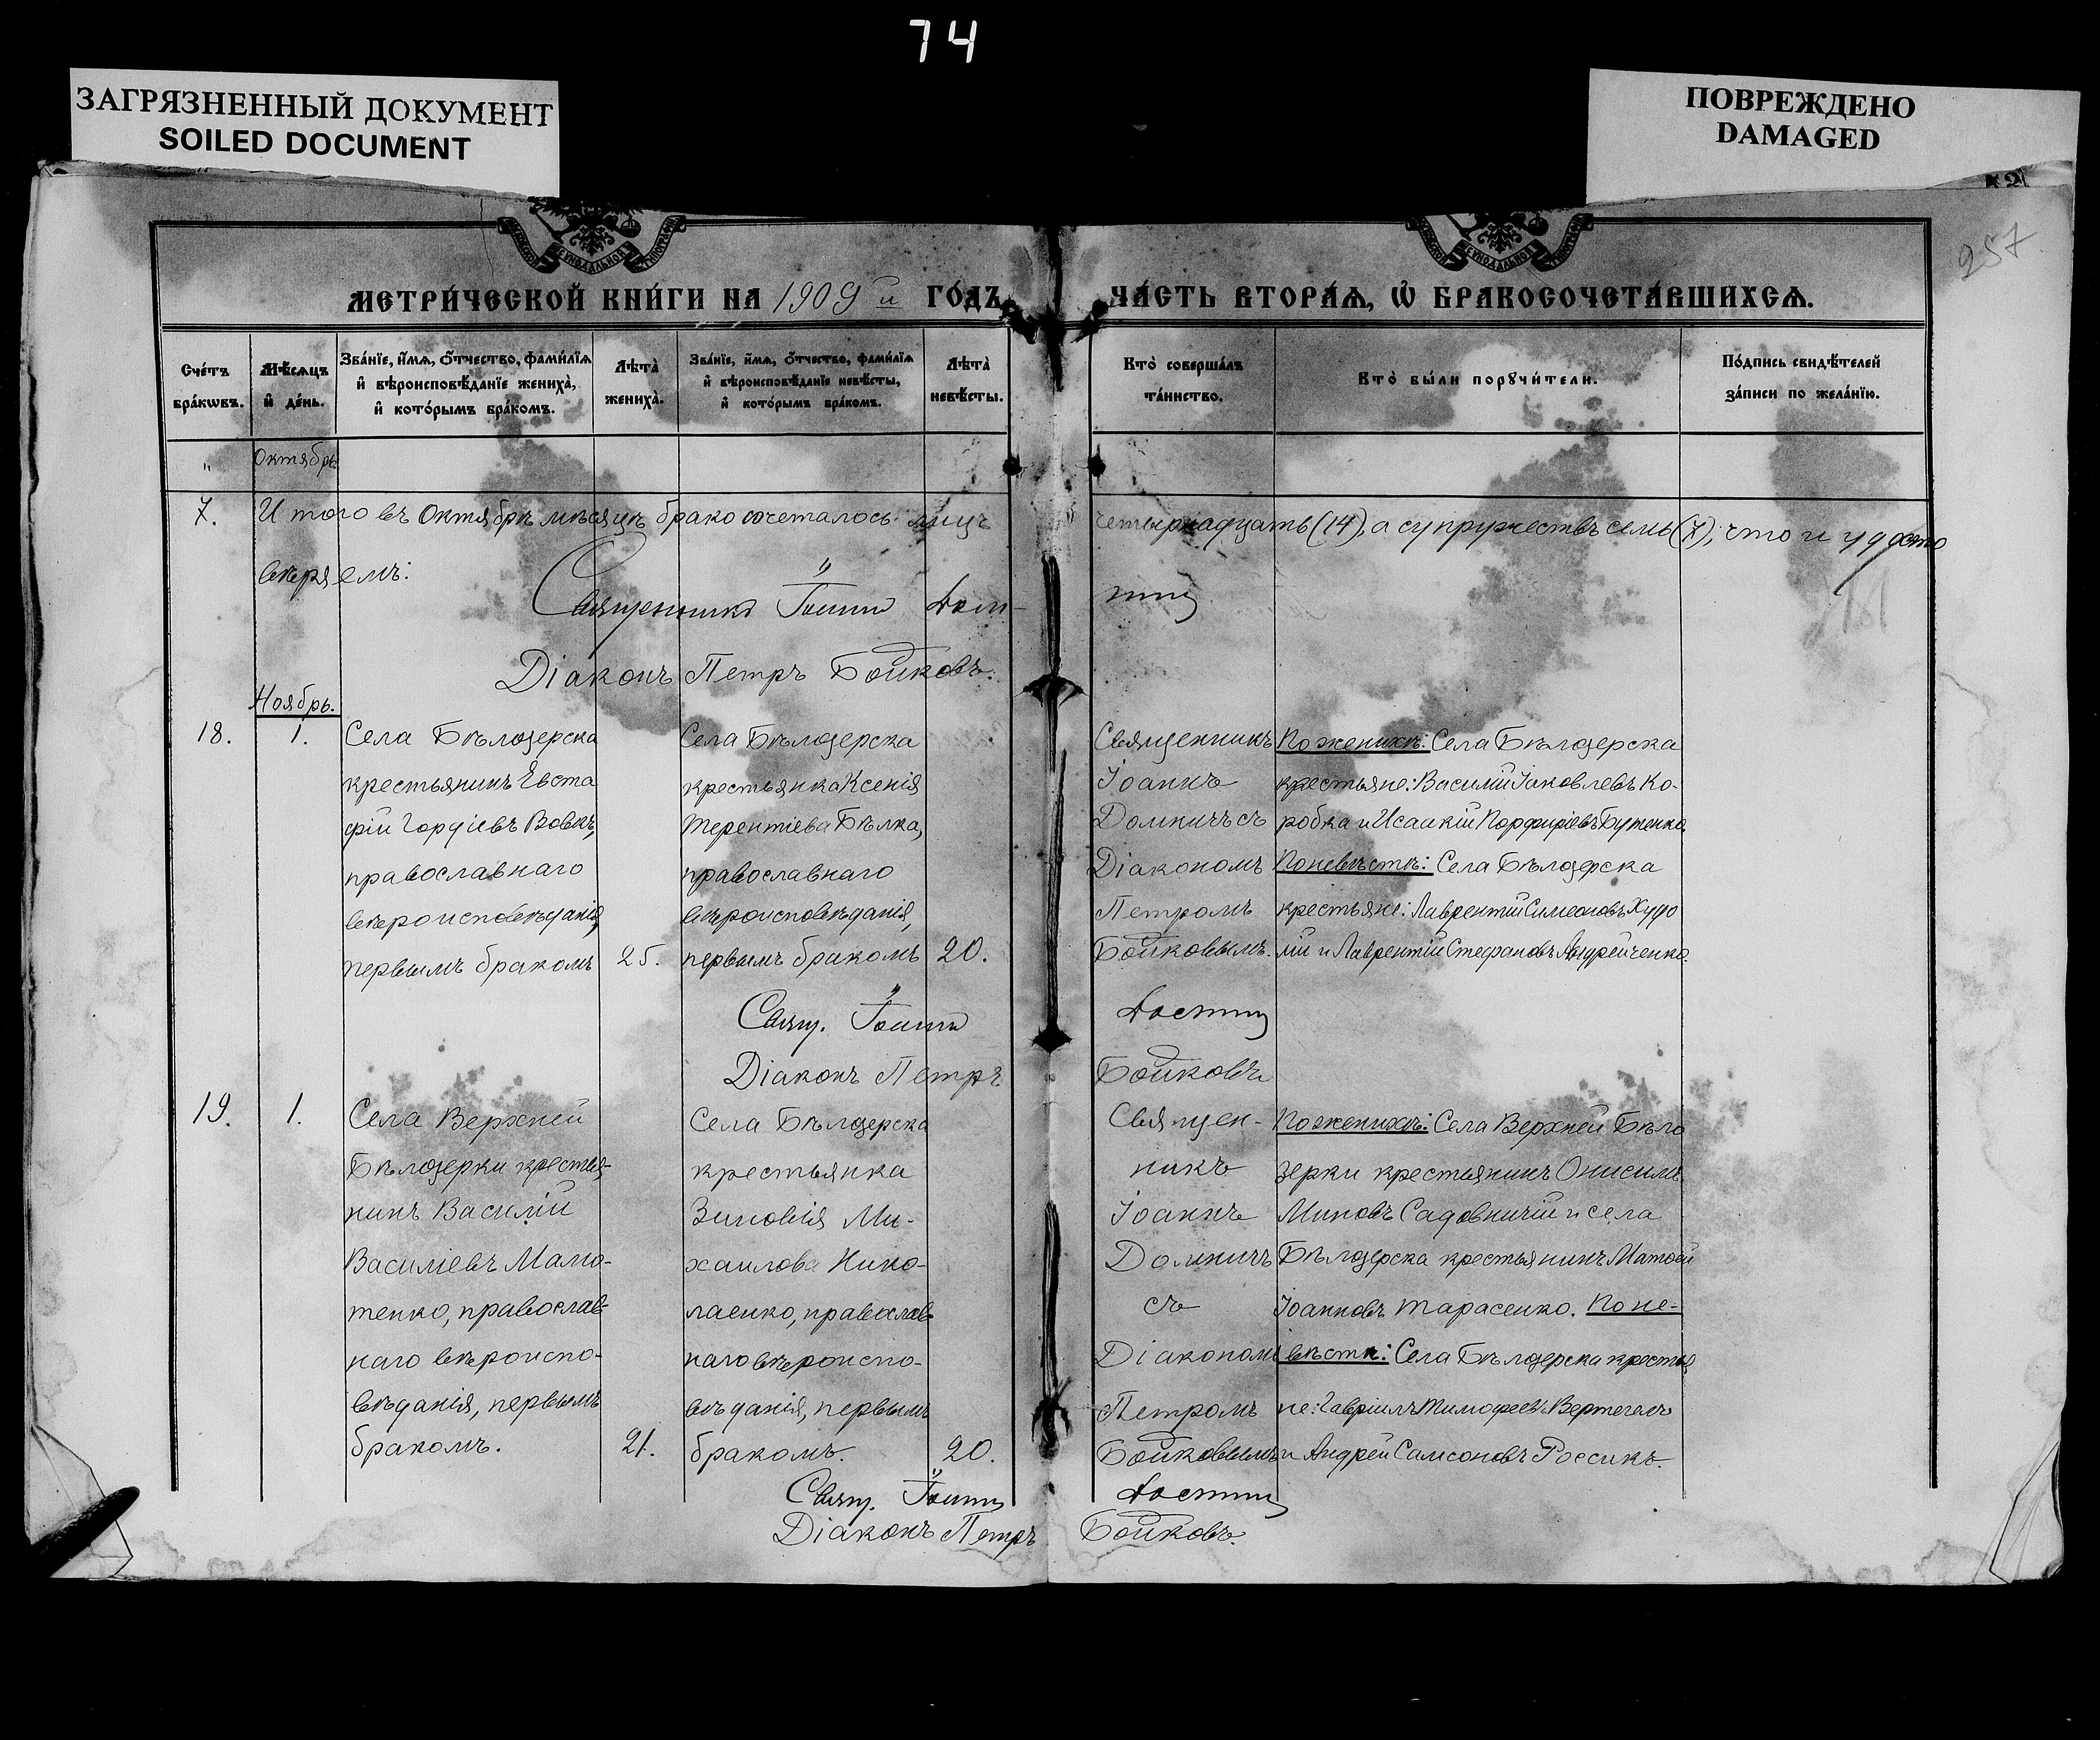 74
ЗАГРЯЗНЕННЫЙ ДОКУМЕНТ
SOILED DOCUMENT
ПОВРЕЖДЕНО
DAMAGED
257
МЕТРИ́ЧЕСКОЙ КНИ́ГИ НА 1909й ГО́ДЪ,
ЧА́СТЬ ВТОРА́Ѧ, Ѡ҆ БРАКОСОЧЕТА́ВШИХСѦ.
Сче́тъ бра́кѡвъ.
Мѣ́сѧцъ и҆ де́нь.
Зва́нїе, и҆́мѧ, ѻ҆́тчество, фами́лїѧ
и҆ вѣроисповѣ́данїе жениха̀,
и҆ кото́рымъ бра́комъ.
Лѣта̀ жениха̀.
Зва́нїе, и҆́мѧ, ѻ҆́тчество, фами́лїѧ
и҆ вѣроисповѣ́данїе невѣ́сты,
и҆ кото́рымъ бра́комъ.
Лѣта̀ невѣ́сты.
Кто̀ соверша́лъ та́инство.
Кто̀ бы́ли порꙋчи́тели.
По́дпись свидѣ́телей
за́писи по жела́нїю.
" Октябрь
7. Итого въ Октябрѣ мѣсяцѣ бракосочеталось лицъ четырнадцать (14), а супружествъ семь (7); что и удосто
вѣряемъ:
Священникъ Іоаннъ
Діаконъ Петръ Бойковъ.
Ноябрь.
18. 1.
Села Бѣлозерска
крестьянинъ Евста
фій Гордіевъ Вовкъ,
православнаго
вѣроисповѣданія,
первымъ бракомъ
25.
Села Бѣлозерска
крестьянка Ксенія
Терентіева Бѣлка,
православнаго
вѣроисповѣданія,
первымъ бракомъ
20.
Священникъ
Іоаннъ
Домничъ съ
Діакономъ
Петромъ
Бойковымъ.
По женихѣ: Села Бѣлозерска
крестьяне: Василій Іаковлевъ Ко-
робка и Исаакій Порфиріевъ Бутенко.
По невѣстѣ: Села Бѣлозерска
крестьяне: Лаврентій Симеоновъ Худо
лій и Лаврентій Стефановъ Андрейченко.
Свящ. Іоаннъ
Діаконъ Петръ Бойковъ
19. 1.
Села Верхней
Бѣлозерки крестья-
нинъ Василій
Василіевъ Мамо-
тенко, православ-
наго вѣроиспо-
вѣданія, первымъ
бракомъ.
21.
Села Бѣлозерска
крестьянка
Зиновія Ми-
хаилова Нико-
лаенко, православ
наго вѣроиспо-
вѣданія, первымъ
бракомъ.
20.
Священ-
никъ
Іоаннъ
Домничъ
съ
Діакономъ
Петромъ
Бойковымъ
По женихѣ: Села Верхней Бѣло
зерки крестьянинъ Онисимъ
Миновъ Садовничій и села
Бѣлозерска крестьянинъ Матѳей
Іоанновъ Тарасенко. По не-
вѣстѣ: Села Бѣлозерска крестья
не: Гавріилъ Тимофеевъ Вертегелъ
и Андрей Самсоновъ Россикъ.
Свящ. Іоаннъ
Діаконъ Петръ Бойковъ.